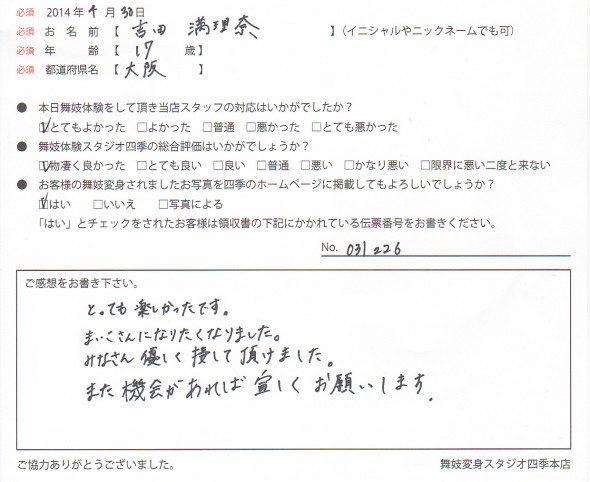 必須 2014年 4 月 30日
必須 お 名 前 【 吉田 満理奈 】(イニシャルやニックネームでも可)
必須 年 齢 【 17 歳】
必須 都道府県名 【 大阪 】
● 本日舞妓体験をして頂き当店スタッフの対応はいかがでしたか?
☑とてもよかった □よかった □普通 □悪かった □とても悪かった
● 舞妓体験スタジオ四季の総合評価はいかがでしょうか?
☑物凄く良かった □とても良い □良い □普通 □悪い □かなり悪い □限界に悪い二度と来ない
● お客様の舞妓変身されましたお写真を四季のホームページに掲載してもよろしいでしょうか?
☑はい □いいえ □写真による
「はい」とチェックをされたお客様は領収書の下記にかかれている伝票番号をお書きください。
No. 031226
ご感想をお書き下さい。
とっても楽しかったです。
まいこさんになりたくなりました。
みなさん優しく接して頂けました。
また機会があれば宜しくお願いします.
ご協力ありがとうございました。
舞妓変身スタジオ四季本店